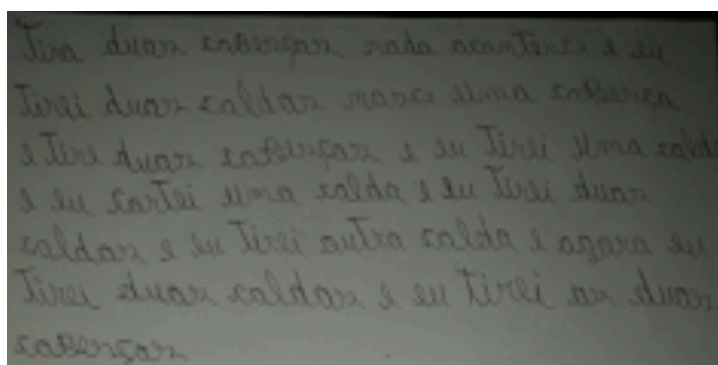 Tira duas cabenças nada acontence e eu
Tirei duas caldas nasce uma cabença
e Tire duas cabenças e eu Tirei uma calda
e eu cortei uma calda e eu Tirei duas
caldas e eu Tirei outra calda e agora eu
Tirei duas caldas e eu Tirei as duas
cabenças